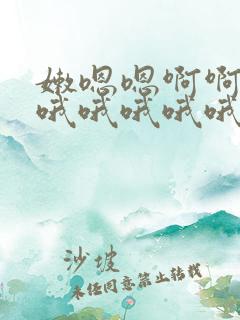 嫩嗯嗯啊啊
哦哦哦哦哦
沙坡
未经同意禁止转载